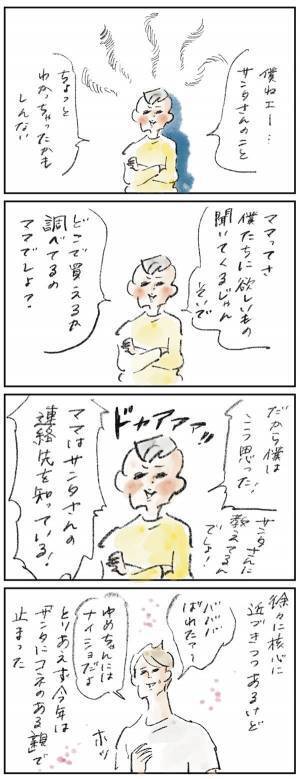 僕ねエー…
サンタさんのこと
ちょっと
わかっちゃったかも
しんない
ママってさ
僕たちに欲しいもの
聞いてくるじゃん
そいで
どこで買えるか
調べてるの
ママでしょ?
だから僕は
こう思った!
サンタさんに
教えてるん
でしょ!
ドヤアアア!!
ママはサンタさんの
連絡先を知っている!
徐々に核心に
近づきつつあるけど
バババ
ばれたァ〜
ゆめちゃんには
ナイショだよ
ホッ
とりあえず今年は
サンタにコネのある親で
止まった